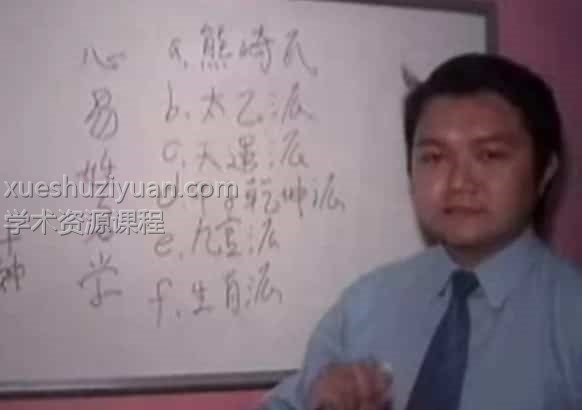 心易姓名学
a. 熊崎氏
b. 太乙派
c. 天運派
d. 乾坤派
e. 九宫派
f. 生肖派
神
xueshuziyuan.com
学术资源课程